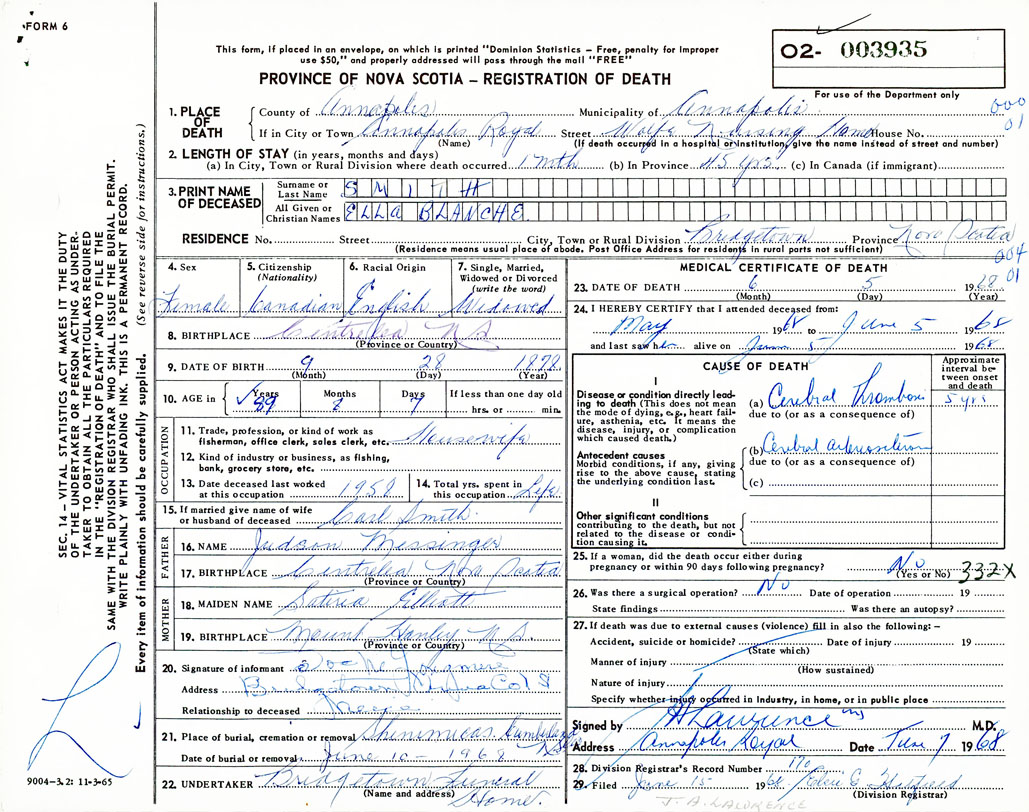 FORM 6
This form, if placed in an envelope, on which is printed "Dominion Statistics – Free, penalty for improper
use $50," and properly addressed will pass through the mail "FREE"
PROVINCE OF NOVA SCOTIA – REGISTRATION OF DEATH
02- 003935
For use of the Department only
000
01
1. PLACE OF DEATH
County of Annapolis Municipality of Annapolis
If in City or Town Annapolis Royal Street Wolfe Nursing Home House No.
(Name) (If death occurred in a hospital or institution, give the name instead of street and number)
2. LENGTH OF STAY (in years, months and days)
(a) In City, Town or Rural Division where death occurred 1 mth (b) In Province 45 yrs (c) In Canada (if immigrant)
3. PRINT NAME OF DECEASED
Surname or Last Name SMITH
All Given or Christian Names ELLA BLANCHE
RESIDENCE No. Street City, Town or Rural Division Bridgetown Province Nova Scotia
(Residence means usual place of abode. Post Office Address for residents in rural parts not sufficient)
004
01
4. Sex
Female
5. Citizenship (Nationality)
Canadian
6. Racial Origin
English
7. Single, Married, Widowed or Divorced (write the word)
Widowed
8. BIRTHPLACE Centrelea N S
(Province or Country)
9. DATE OF BIRTH 9 28 1878
(Month) (Day) (Year)
10. AGE in Years 89 Months 8 Days 7 If less than one day old
hrs. or min.
OCCUPATION
11. Trade, profession, or kind of work as
fisherman, office clerk, sales clerk, etc. Housewife
12. Kind of industry or business, as fishing,
bank, grocery store, etc.
13. Date deceased last worked
at this occupation 1958
14. Total yrs. spent in
this occupation Life
15. If married give name of wife
or husband of deceased Carl Smith
FATHER
16. NAME Judson Messinger
17. BIRTHPLACE Centrelea Nova Scotia
(Province or Country)
MOTHER
18. MAIDEN NAME Elliott
19. BIRTHPLACE Mount Hanley N.S.
(Province or Country)
20. Signature of informant
Address Bridgetown
Relationship to deceased Neece
21. Place of burial, cremation or removal Shinimicas Cumberland
Date of burial or removal June 10 - 1968
22. UNDERTAKER Bridgetown Funeral
(Name and address) Home.
MEDICAL CERTIFICATE OF DEATH
23. DATE OF DEATH 6 5 1968
(Month) (Day) (Year)
24. I HEREBY CERTIFY that I attended deceased from:
May 1968 to June 5 1968
and last saw her alive on June 5 1968
CAUSE OF DEATH
Approximate interval between onset and death
I
Disease or condition directly leading to death (This does not mean the mode of dying, e.g., heart failure, asthenia, etc. It means the disease, injury, or complication which caused death.)
(a) Cerebral Thrombosis 5 yrs
due to (or as a consequence of)
Antecedent causes
Morbid conditions, if any, giving rise to the above cause, stating the underlying condition last.
(b) Cerebral arteriosclerosis
due to (or as a consequence of)
(c)
II
Other significant conditions
contributing to the death, but not related to the disease or condition causing it.
25. If a woman, did the death occur either during
pregnancy or within 90 days following pregnancy? No
(Yes or No) 332X
26. Was there a surgical operation? No Date of operation 19
State findings Was there an autopsy?
27. If death was due to external causes (violence) fill in also the following:–
Accident, suicide or homicide? Date of injury 19
(State which)
Manner of injury
(How sustained)
Nature of injury
Specify whether injury occurred in Industry, in home, or in public place
Signed by Lawrence M.D.
Address Annapolis Royal Date June 7 1968
28. Division Registrar's Record Number 170
29. Filed June 15 1968
(Division Registrar)
J. A. LAWRENCE
SEC. 14 – VITAL STATISTICS ACT MAKES IT THE DUTY
OF THE UNDERTAKER OR PERSON ACTING AS UNDER-
TAKER TO OBTAIN ALL THE PARTICULARS REQUIRED
IN THE "REGISTRATION OF DEATH" AND TO FILE THE
SAME WITH THE DIVISION REGISTRAR WHO SHALL ISSUE THE BURIAL PERMIT.
WRITE PLAINLY WITH UNFADING INK. THIS IS A PERMANENT RECORD.
Every item of information should be carefully supplied. (See reverse side for instructions.)
9004-3.2: 11-3-65